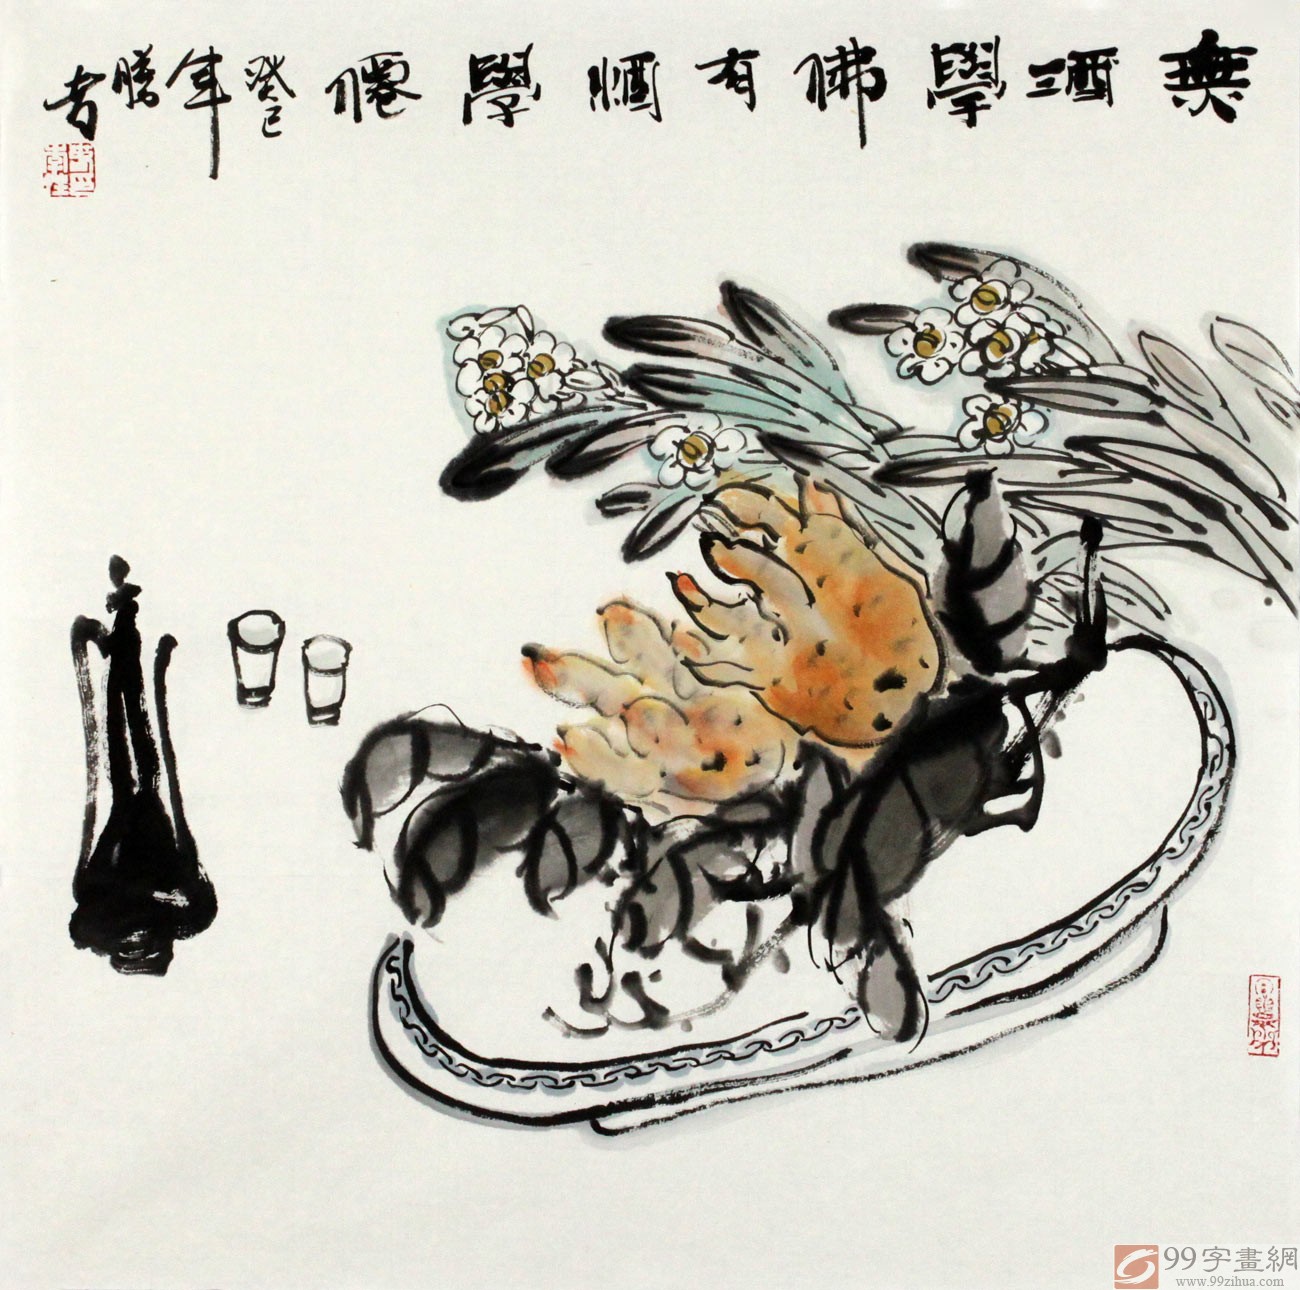 無酒學佛有酒學僊癸巳年勝書
99字畫網
www.99zihua.com